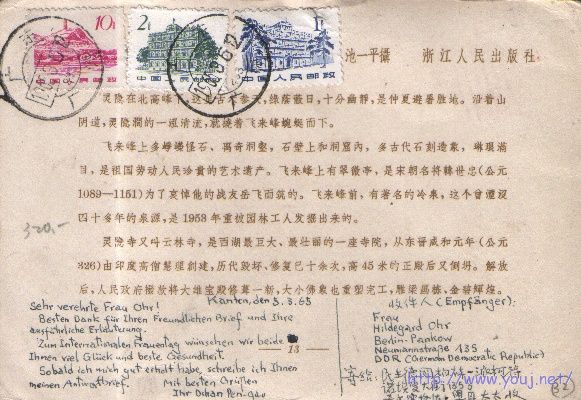 10分
2分
1分
中国人民邮政
中国人民邮政
中国人民邮政
池一平攝 浙江人民出版社
灵隐在北高峰下,这里古木参天,綠蔭蔽日,十分幽靜,是仲夏避暑胜地。沿着山
阴道,灵隐澗的一琨清流,就繞着飞来峰蜿蜒而下。
飞来峰上多崢嶸怪石、离奇洞壑,石壁上和洞窟內,多古代石刻造象,琳琅滿
目,是祖国劳动人民珍貴的艺术遺产。飞来峰上有翠薇亭,是宋朝名将韓世忠(公元
1089—1151)为了哀悼他的战友岳飞而筑的。飞来峰前,有著名的冷泉,这个曾湮沒
四十多年的泉源,是1958年重被园林工人发掘出来的。
灵隐寺又叫云林寺,是西湖最巨大、最壮丽的一座寺院,从东晋咸和元年(公元
326)由印度高僧慧理創建,历代毀坏、修复已十余次,高45米的正殿后又倒坍。解放
后,人民政府撥款将大雄宝殿修葺一新,大小佛象也重塑完工,雕梁画栋、金碧輝煌。
320,-
Kanton, den 5.3.65
Sehr verehrte Frau Ohr!
Besten Dank für Ihren Freundlichen Brief und Ihre
ausführliche Erläuterung.
Zum Internationalen Frauentag wünschen wir beide
Ihnen viel Glück und beste Gesundheit.
Sobald ich mich gut erholt habe schreibe ich Ihnen
meinen Antwortbrief. Mit besten Grüßen
— 13 —
收件人(Empfänger):
Frau
Hildegard Ohr
Berlin-Pankow
Neumannstraße 135
DDR (German Democratic Republic)
http://www.youj.net/